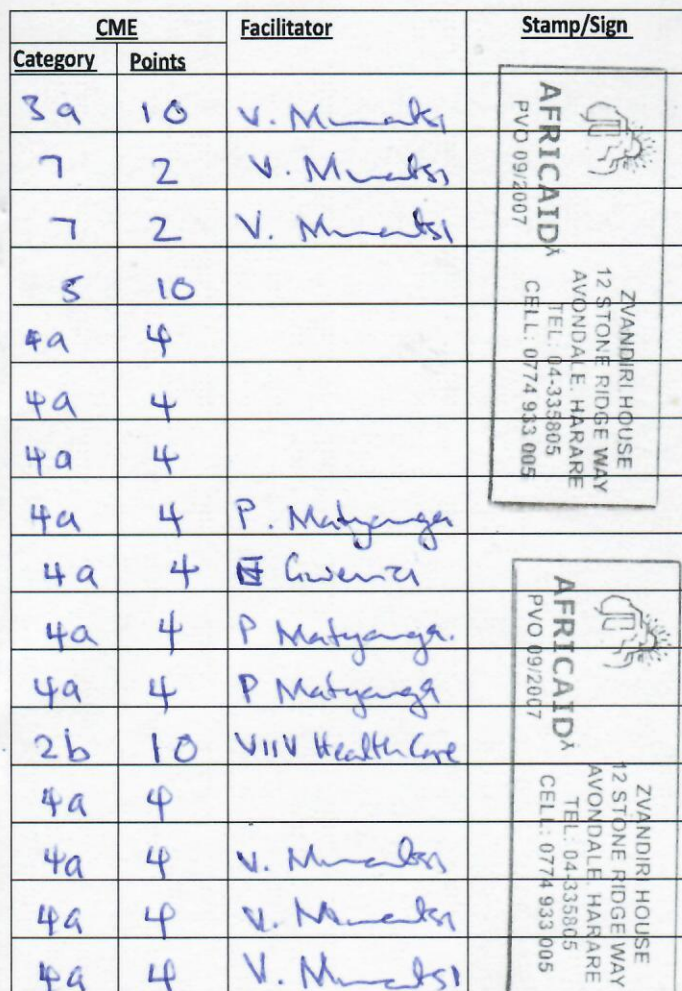 CME Facilitator Stamp/Sign
Category Points
3a 10 V.
7 2 V.
7 2 V.
5 10
4a 4
4a 4
4a 4
4a 4 P. Matyanga
4a 4 Gwenzi
4a 4 P Matyanga.
4a 4 P Matyanga
2b 10 VIIV HealthCare
4a 4
4a 4 V.
4a 4 V.
4a 4 V.
AFRICAID
PVO 09/2007
ZVANDIRI HOUSE
12 STONE RIDGE WAY
AVONDALE, HARARE
TEL: 04-335805
CELL: 0774 933 005
AFRICAID
PVO 09/2007
ZVANDIRI HOUSE
12 STONE RIDGE WAY
AVONDALE, HARARE
TEL: 04-335805
CELL: 0774 933 005